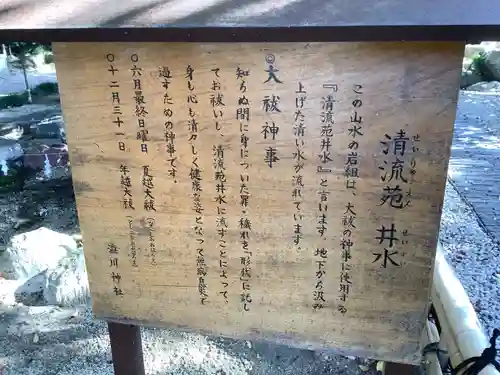 せいりゅうえん せいすい
清流苑 井水
この山水の岩組は、大祓の神事に使用する
『清流苑井水』と言います。地下から汲み
上げた清い水が流れています。
◎大祓神事
知らぬ間に身についた罪・穢れを「形状」に記し
てお祓いし、清流苑井水に流すことによって、
身も心も清々しく健康な姿となって無病息災で
過すための神事です。
○六月最終日曜日 夏越大祓
○十二月三十一日 年越大祓
澁川神社